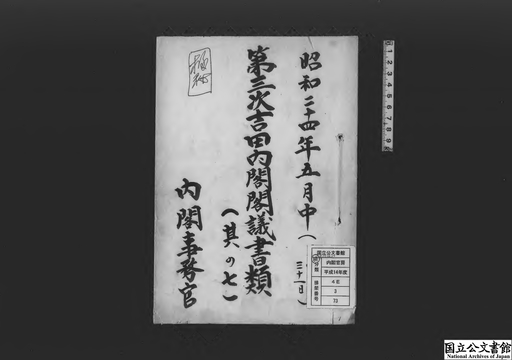 昭和二十四年五月中(三十一日)
第三次吉田内閣閣議書類
(其の七)
内閣事務官
国立公文書館
分類
内閣官房
平成14年度
排架番号
4E
3
1 2 3 4 5 6 7 8 9
国立公文書館
National Archives of Japan